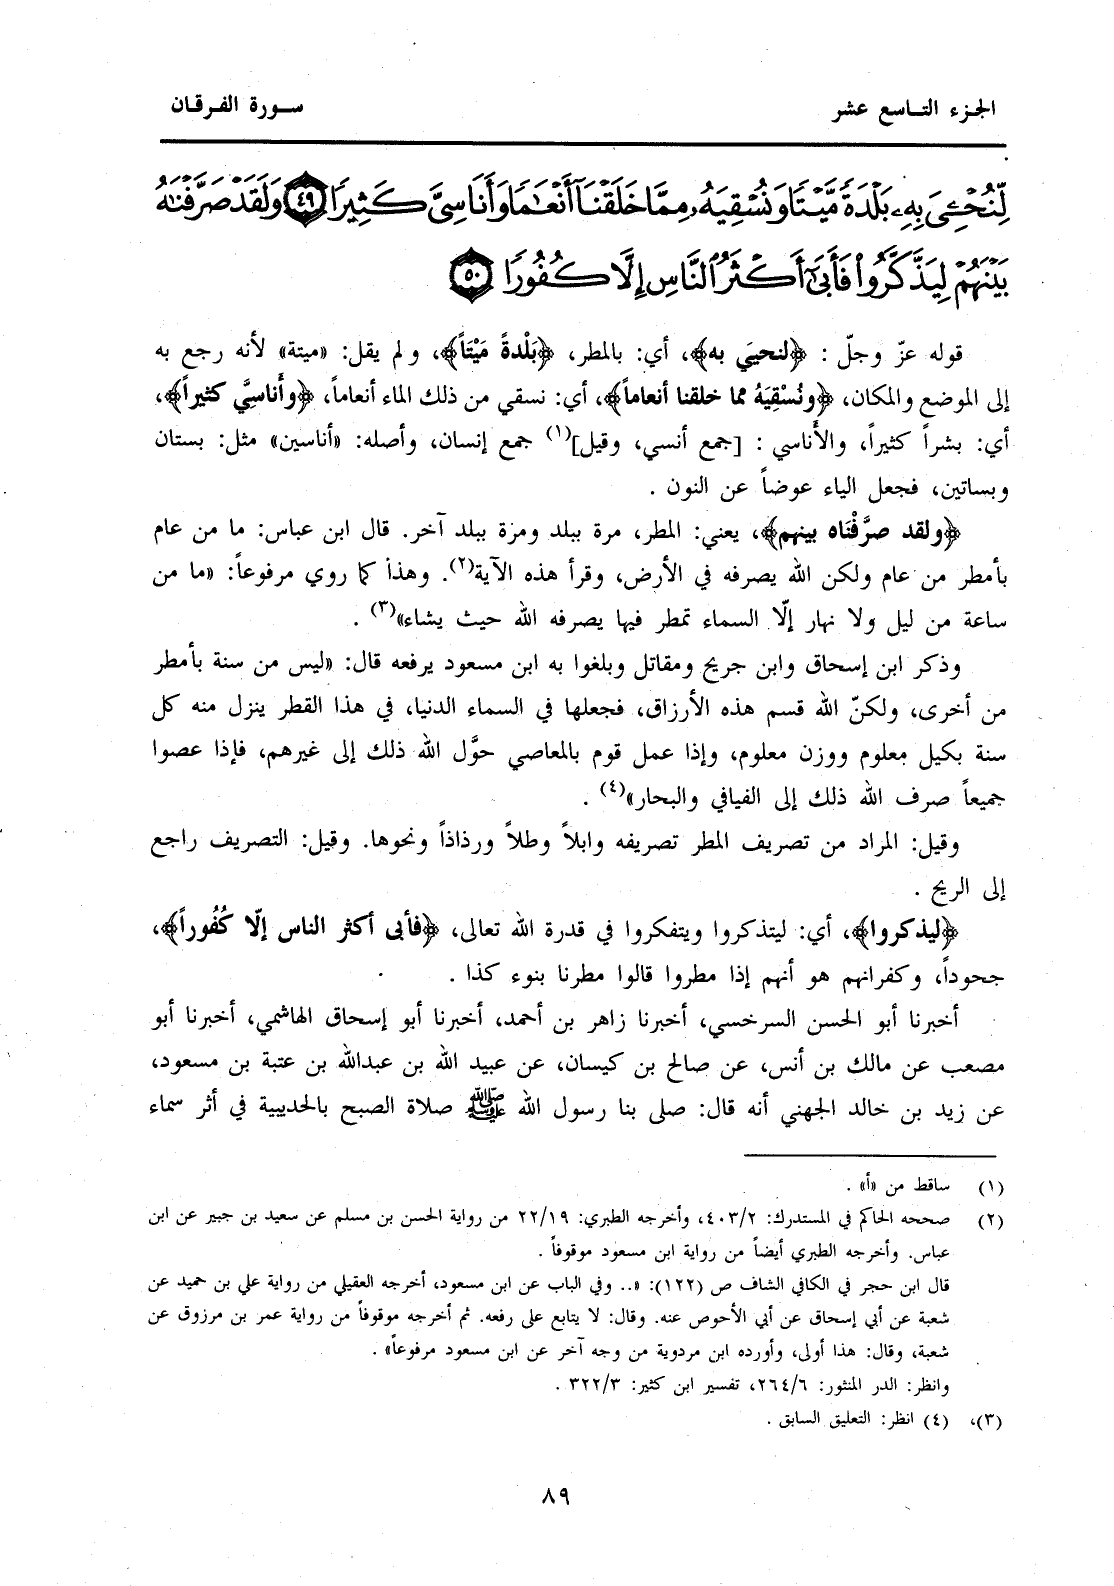 الجزء التاسع عشر
سورة الفرقان
لِّنُحْـِۧيَ بِهِۦ بَلْدَةً مَّيْتًا وَنُسْقِيَهُۥ مِمَّا خَلَقْنَآ أَنْعَـٰمًا وَأَنَاسِىَّ كَثِيرًا ﴿٤٩﴾ وَلَقَدْ صَرَّفْنَـٰهُ
بَيْنَهُمْ لِيَذَّكَّرُوا۟ فَأَبَىٰٓ أَكْثَرُ ٱلنَّاسِ إِلَّا كُفُورًا ﴿٥٠﴾
قوله عزّ وجلّ : ﴿لنحييَ به﴾، أي: بالمطر، ﴿بَلْدةً مَيْتاً﴾، ولم يقل: «ميتة» لأنه رجع به
إلى الموضع والمكان، ﴿ونُسْقِيَهُ مما خلقنا أنعاماً﴾، أي: نسقي من ذلك الماء أنعاماً، ﴿وأَناسيَّ كثيراً﴾،
أي: بشراً كثيراً، والأناسي : [جمع أنسي، وقيل](١) جمع إنسان، وأصله: «أناسين» مثل: بستان
وبساتين، فجعل الياء عوضاً عن النون .
﴿ولقد صرَّفْنَاه بينهم﴾، يعني: المطر، مرة ببلد ومرة ببلد آخر. قال ابن عباس: ما من عام
بأمطر من عام ولكن الله يصرفه في الأرض، وقرأ هذه الآية(٢). وهذا كما روي مرفوعاً: «ما من
ساعة من ليل ولا نهار إلّا السماء تمطر فيها يصرفه الله حيث يشاء»(٣) .
وذكر ابن إسحاق وابن جريج ومقاتل وبلغوا به ابن مسعود يرفعه قال: «ليس من سنة بأمطر
من أخرى، ولكنّ الله قسم هذه الأرزاق، فجعلها في السماء الدنيا، في هذا القطر ينزل منه كل
سنة بكيل معلوم ووزن معلوم، وإذا عمل قوم بالمعاصي حوَّل الله ذلك إلى غيرهم، فإذا عصوا
جميعاً صرف الله ذلك إلى الفيافي والبحار»(٤) .
وقيل: المراد من تصريف المطر تصريفه وابلاً وطلاً ورذاذاً ونحوها. وقيل: التصريف راجع
إلى الريح .
﴿ليذكروا﴾، أي: ليتذكروا ويتفكروا في قدرة الله تعالى، ﴿فأبى أكثر الناس إلّا كُفُوراً﴾،
جحوداً، وكفرانهم هو أنهم إذا مطروا قالوا مطرنا بنوء كذا .
أخبرنا أبو الحسن السرخسي، أخبرنا زاهر بن أحمد، أخبرنا أبو إسحاق الهاشمي، أخبرنا أبو
مصعب عن مالك بن أنس، عن صالح بن كيسان، عن عبيد الله بن عبدالله بن عتبة بن مسعود،
عن زيد بن خالد الجهني أنه قال: صلى بنا رسول الله ﷺ صلاة الصبح بالحديبية في أثر سماء
(١) ساقط من «أ» .
(٢) صححه الحاكم في المستدرك: ٤٠٣/٢، وأخرجه الطبري: ٢٢/١٩ من رواية الحسن بن مسلم عن سعيد بن جبير عن ابن
عباس. وأخرجه الطبري أيضاً من رواية ابن مسعود موقوفاً .
قال ابن حجر في الكافي الشاف ص (١٢٢): «.. وفي الباب عن ابن مسعود، أخرجه العقيلي من رواية علي بن حميد عن
شعبة عن أبي إسحاق عن أبي الأحوص عنه. وقال: لا يتابع على رفعه. ثم أخرجه موقوفاً من رواية عمر بن مرزوق عن
شعبة، وقال: هذا أولى، وأورده ابن مردوية من وجه آخر عن ابن مسعود مرفوعاً» .
وانظر: الدر المنثور: ٢٦٤/٦، تفسير ابن كثير: ٣٢٢/٣ .
(٣)، (٤) انظر: التعليق السابق .
٨٩